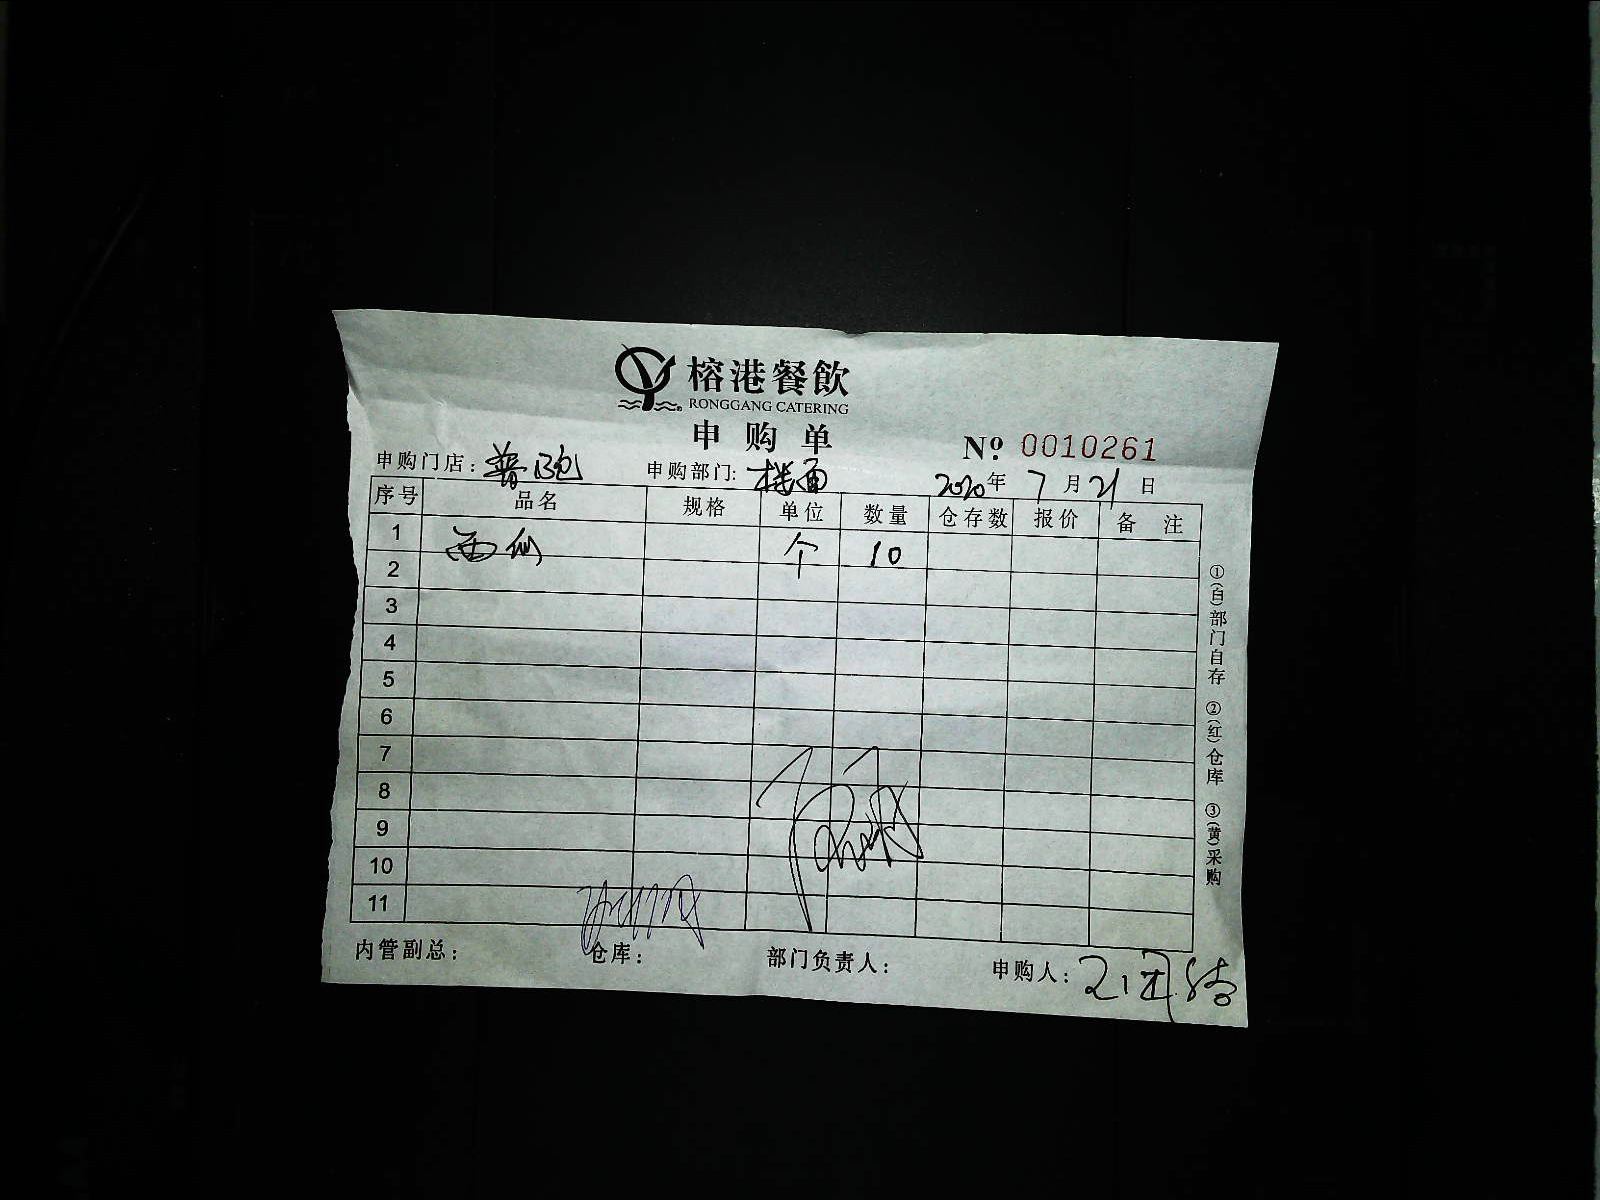 榕港餐飲
RONGGANG CATERING
申购单
№ 0010261
申购门店： 申购部门: 楼面 2020年 7月 21日
序号 品名 规格 单位 数量 仓存数 报价 备注
1 西仙 个 10
2
3
4
5
6
7
8
9
10
11
内管副总： 仓库： 部门负责人： 申购人：
①(白)部门自存 ②(红)仓库 ③(黄)采购